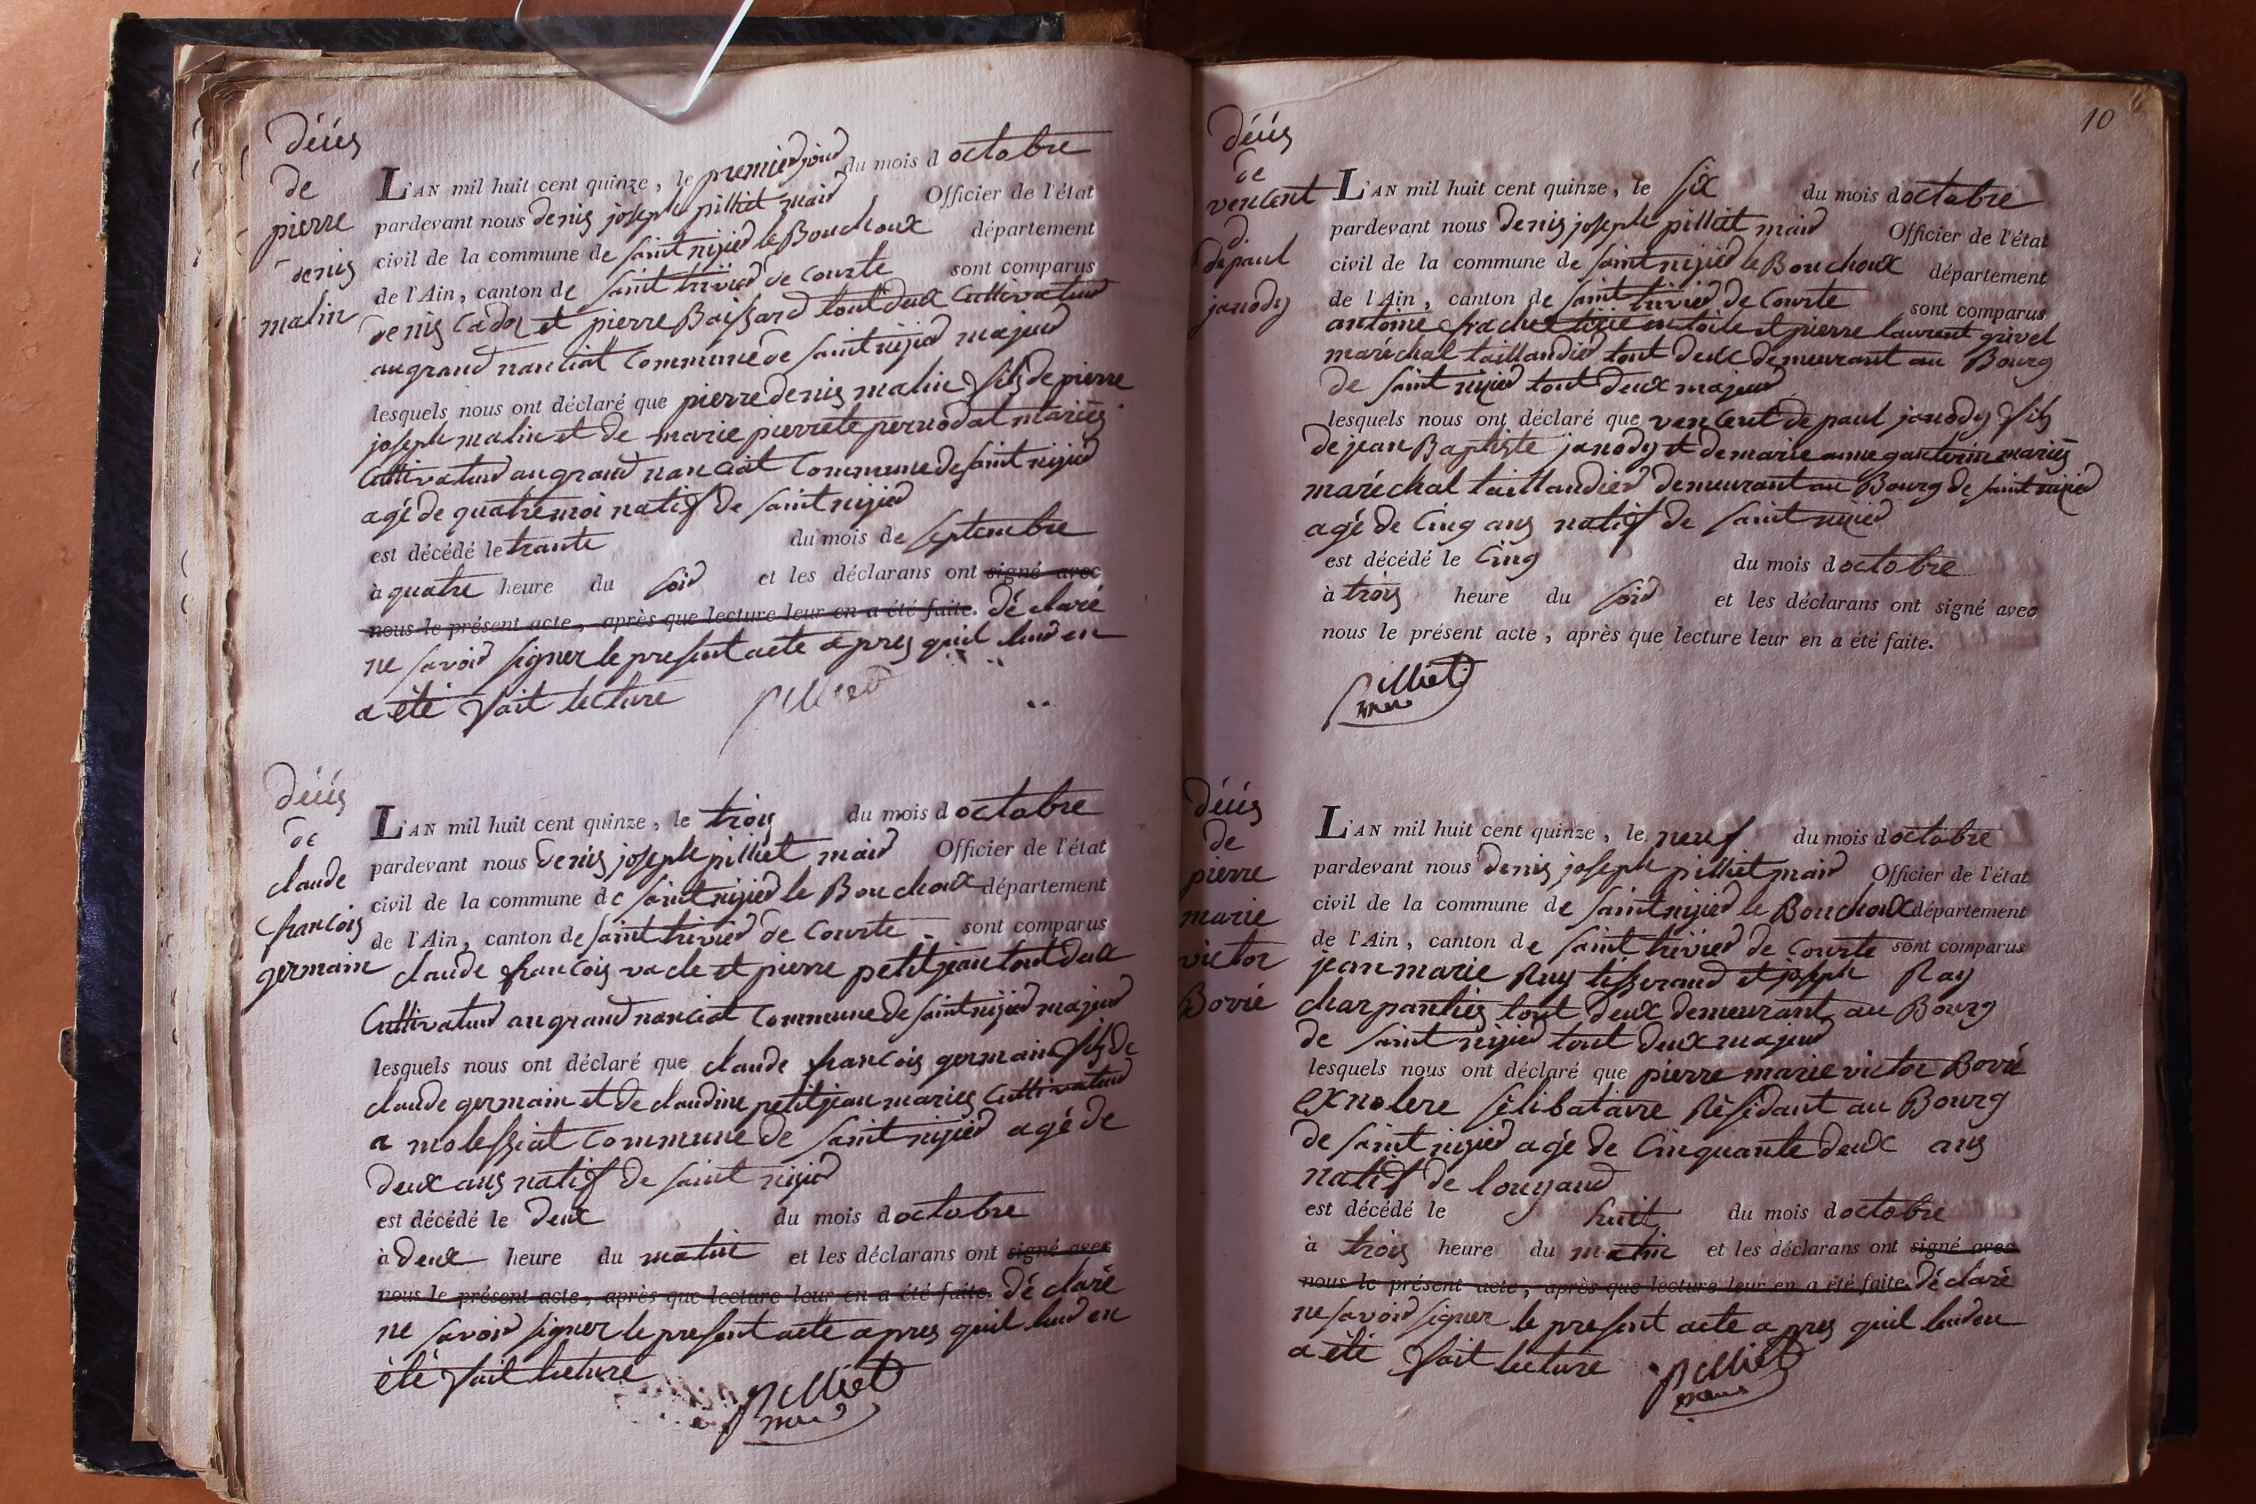 déces
de
pierre
denis
malin
L'AN mil huit cent quinze, le premier jour du mois d octobre
pardevant nous denis joseph pilliet mair Officier de l'état
civil de la commune de saint nizied le Bouchoux département
de l'Ain, canton de saint trivied de Courte sont comparus
denis Cadoz et pierre Boissard tout deux Cultivateur
au grand nanciat Commune de saint nizied majeur
lesquels nous ont déclaré que pierre denis malin fils de pierre
joseph malin et de marie pierrete pernodat mariés
Cultivateur au grand nanciat Commune de saint nizied
agé de quatre moi natif de saint nizied
est décédé le trante du mois de septembre
à quatre heure du soir et les déclarans ont signé avec
nous le présent acte, après que lecture leur en a été faite. déclaré
ne savoir signer le present acte apres quil leur en
a été fait lecture pilliet
déces
de
claude
francois
germain
L'AN mil huit cent quinze, le trois du mois d octobre
pardevant nous denis joseph pilliet mair Officier de l'état
civil de la commune de saint nizied le Bouchoux département
de l'Ain, canton de saint trivied de Courte sont comparus
claude francois vacle et pierre petitjean tout deux
Cultivateur au grand nanciat Commune de saint nizied majeur
lesquels nous ont déclaré que claude francois germain fils de
claude germain et de claudine petitjean maries Cultivateur
a molessiat Commune de saint nizied agé de
deux ans natif de saint nizied
est décédé le deux du mois d octobre
à deux heure du matin et les déclarans ont signé avec
nous le présent acte, après que lecture leur en a été faite. déclaré
ne savoir signer le present acte apres quil leur en
été fait lecture pilliet
mair
10
déces
de
vencent
d
depaul
janody
L'AN mil huit cent quinze, le six du mois d octobre
pardevant nous denis joseph pilliet mair Officier de l'état
civil de la commune de saint nizied le Bouchoux département
de l'Ain, canton de saint trivied de Courte sont comparus
antoine frachet en toile et pierre laurent grivel
maréchal taillandier tout deux demeurant au Bourg
de saint nizied tout deux majeur
lesquels nous ont déclaré que vencent de paul janody fils
de jean Baptiste janody et de marie anne mariés
maréchal taillandier demeurant au Bourg de saint nizied
agé de Cinq ans natif de saint nizied
est décédé le Cinq du mois d octobre
à trois heure du soir et les déclarans ont signé avec
nous le présent acte, après que lecture leur en a été faite.
pilliet
mair
déces
de
pierre
marie
victor
Bovié
L'AN mil huit cent quinze, le neuf du mois d octobre
pardevant nous denis joseph pilliet mair Officier de l'état
civil de la commune de saint nizied le Bouchoux département
de l'Ain, canton de saint trivied de Courte sont comparus
jean marie Ruy tisserand et joseph Ray
charpantier tout deux demeurant au Bourg
de saint nizied tout deux majeur
lesquels nous ont déclaré que pierre marie victor Bovié
exnolere sélibatavre Résidant au Bourg
de saint nizied agé de Cinquante deux ans
natif de louyand
est décédé le huit du mois d octobre
à trois heure du matin et les déclarans ont signé avec
nous le présent acte, après que lecture leur en a été faite. déclaré
ne savoir signer le present acte apres quil leur en
a été fait lecture pilliet
mair